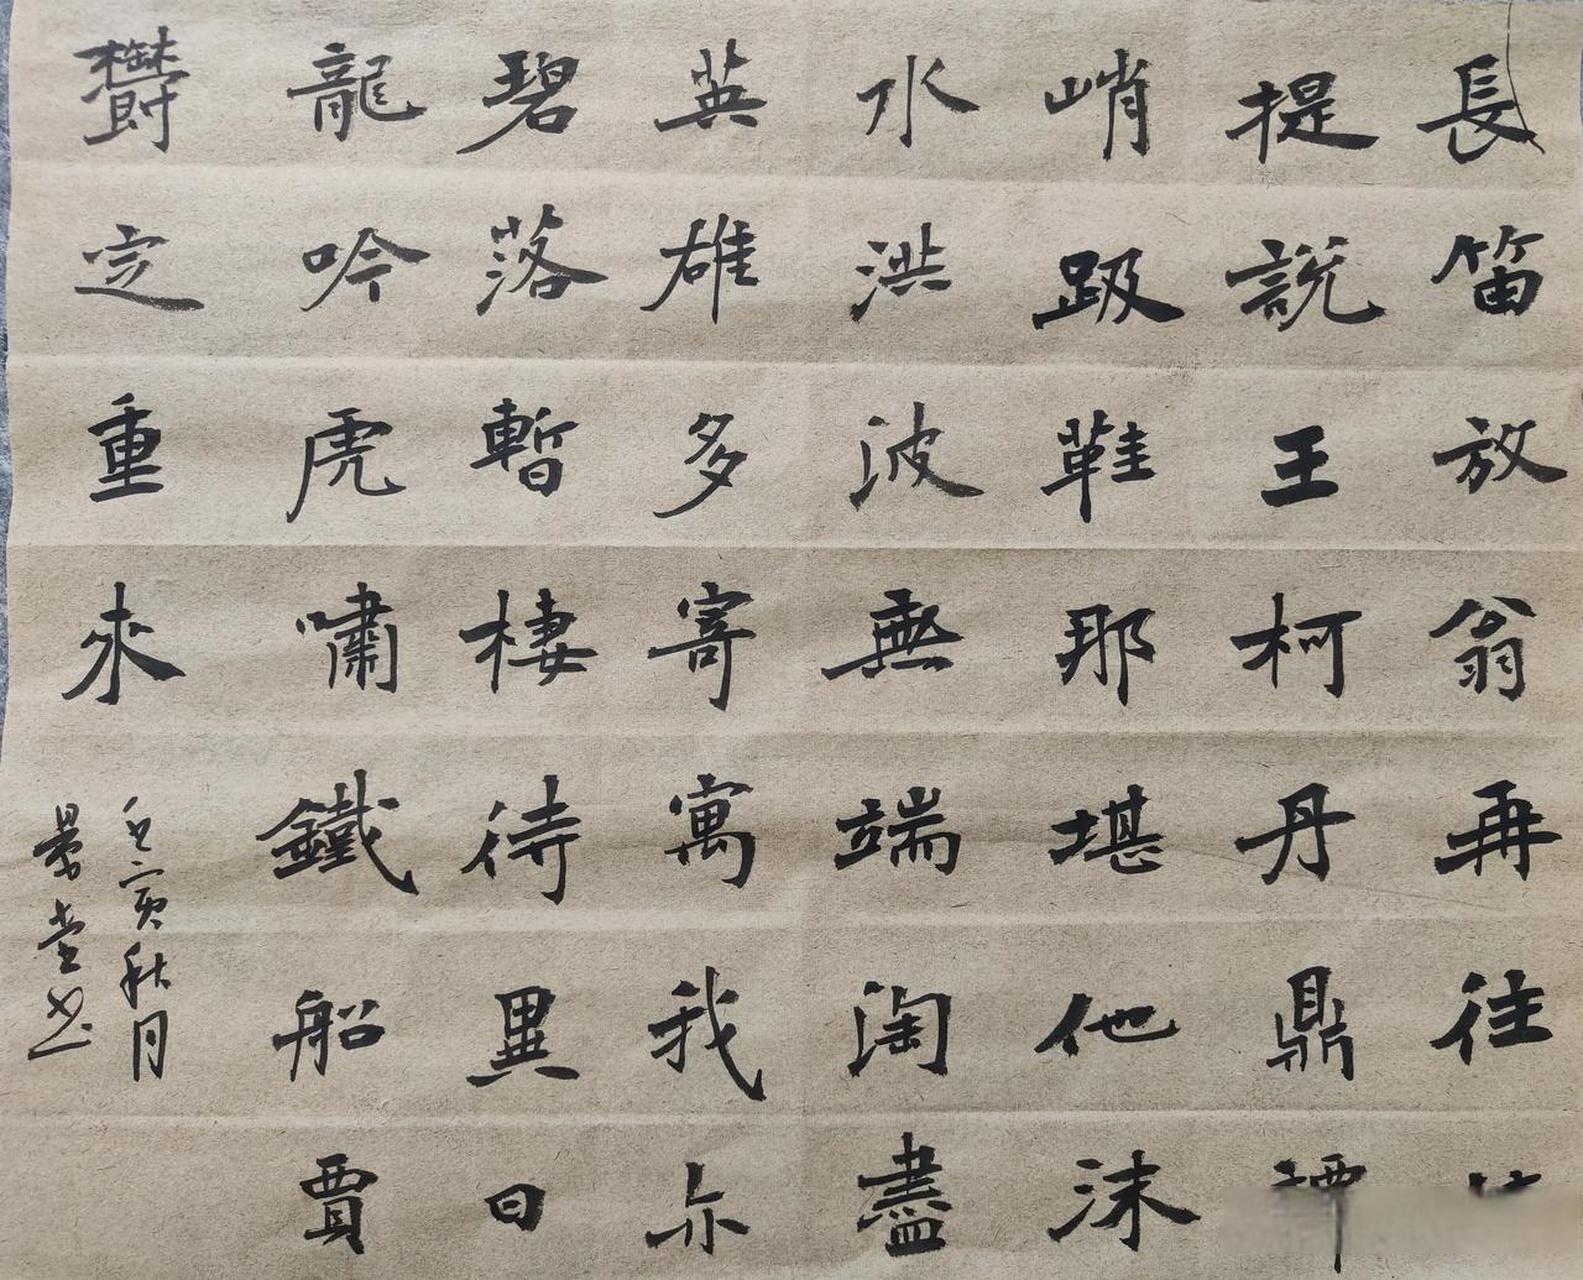 長笛放翁再往
提說王柯丹鼎
峭趿鞋那堪他沫
水洪波無端淘盡
英雄多寄寓我亦
碧落暫棲待異日
龍吟虎嘯鐵船賈
欝定重來
壬寅秋月
景堂书